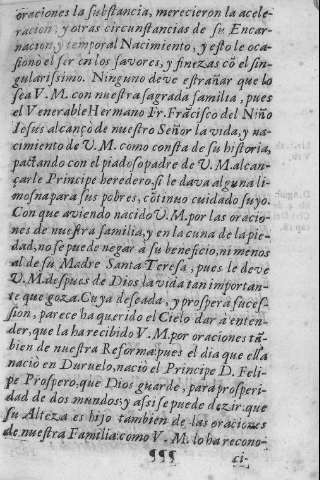 oraciones la substancia, merecieron la acele-
racion, y otras circunstancias de su Encar-
nacion, y temporal Nacimiento, y esto le oca-
sionò el ser cō los favores, y finezas cō el sin-
gularissimo. Ninguno deve estrañar que lo
sea V. M. con nuestra sagrada familia, pues
el Venerable Hermano Fr. Frācisco del Niño
Iesus alcançò de nuestro Señor la vida, y na-
cimiento de V. M. como consta de su historia,
pactando con el piadoso padre de V. M. alcan-
çarle Principe heredero, si le dava alguna li-
mosna para sus pobres, cōtinuo cuidado suyo.
Con que aviendo nacido V. M. por las oracio-
nes de nuestra familia, y en la cuna de la pie-
dad, no se puede negar à su beneficio, ni menos
al de su Madre Santa Teresa, pues le deve
V. M. despues de Dios la vida tan importan-
te que goza. Cuya deseada, y prospera suces-
sion, parece ha querido el Cielo dar à enten-
der, que la ha recibido V. M. por oraciones tā-
bien de nuestra Reforma: pues el dia que ella
naciò en Duruelo, naciò el Principe D. Feli-
pe Prospero, que Dios guarde, para prosperi-
dad de dos mundos: y assi se puede dezir: que
su Alteza es hijo tambien de las oraciones
de nuestra Familia: como V. M. lo ha recono-
¶¶¶ ci-